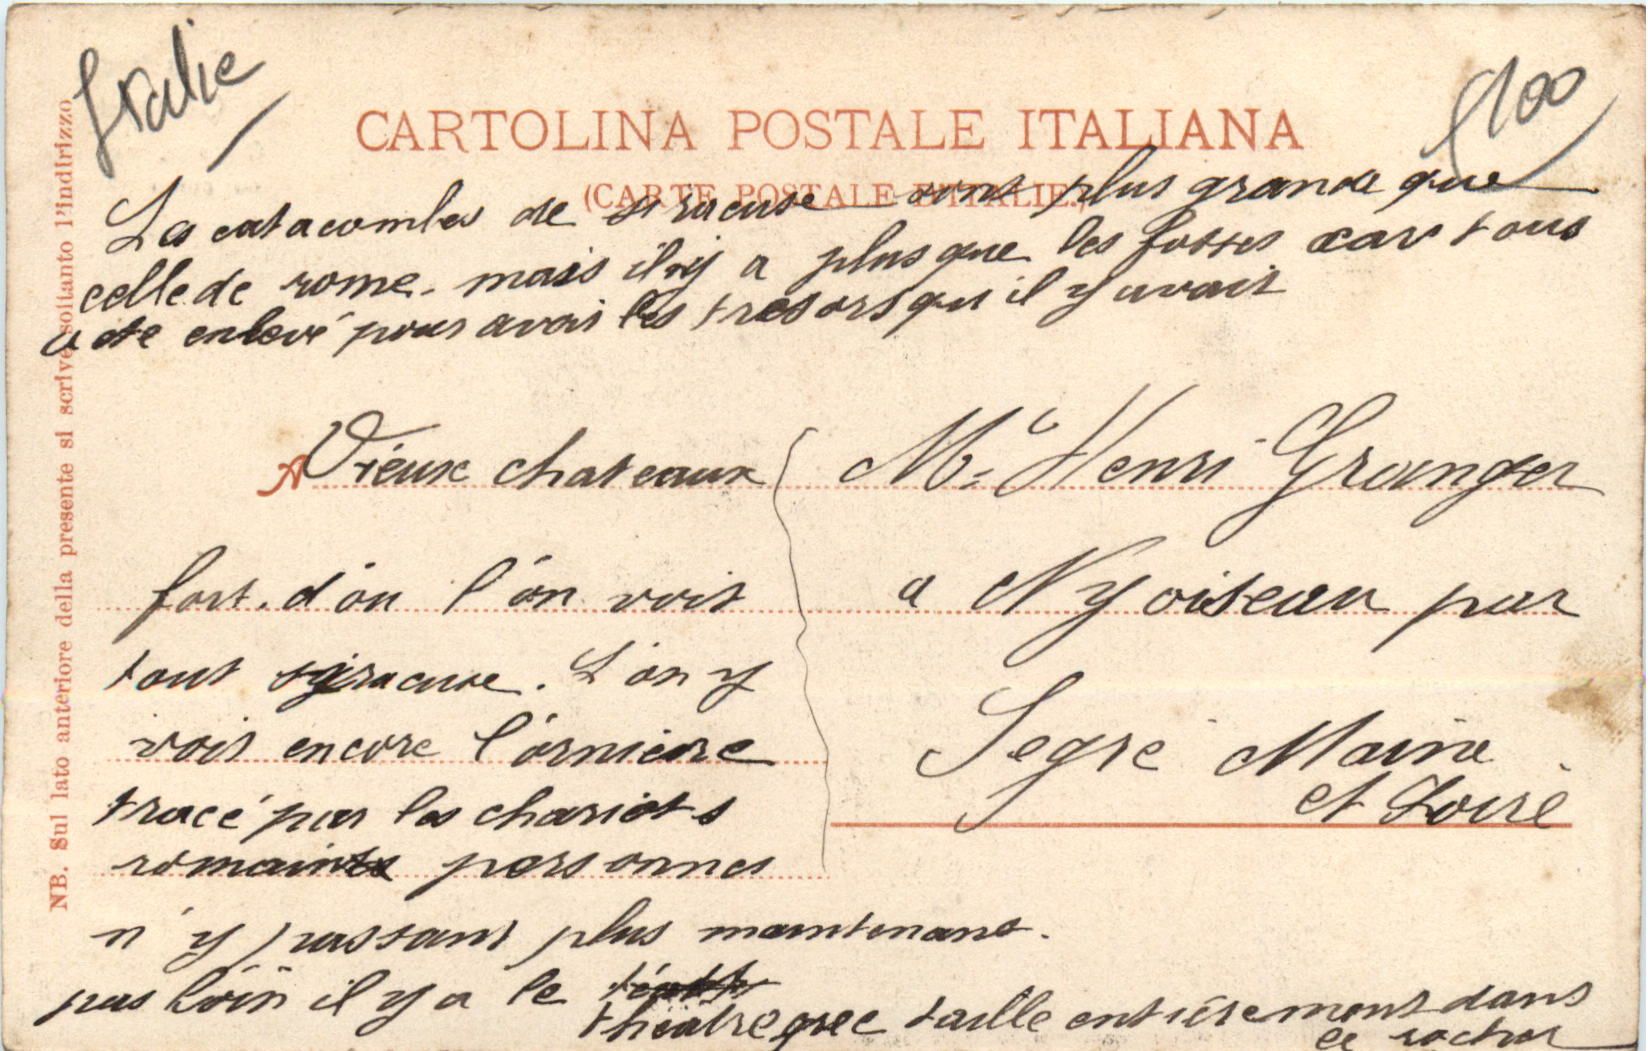 Italie
100
CARTOLINA POSTALE ITALIANA
(CARTE POSTALE D'ITALIE)
Les catacombes de siracuse sont plus grande que
celle de rome. mais il ny a plus que les fosses car tous
a ete enlevé pour avoir les tresors qu il y avait
A Vieux chateaux
fort. d'ou l'on voit
tout syracuse. L'on y
voit encore l'orniere
tracé par les chariots
romains personnes
n'y passant plus maintenant.
pas loin il y a le
théatre grec taille entièrement dans
le rocher
Mr. Henri Granger
a Nyoiseau par
Segré Maine
et Loire
NB. Sul lato anteriore della presente si scrive soltanto l'indirizzo